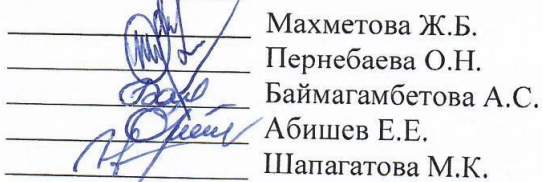 Махметова Ж.Б.
Пернебаева О.Н.
Баймагамбетова А.С.
Абишев Е.Е.
Шапагатова М.К.